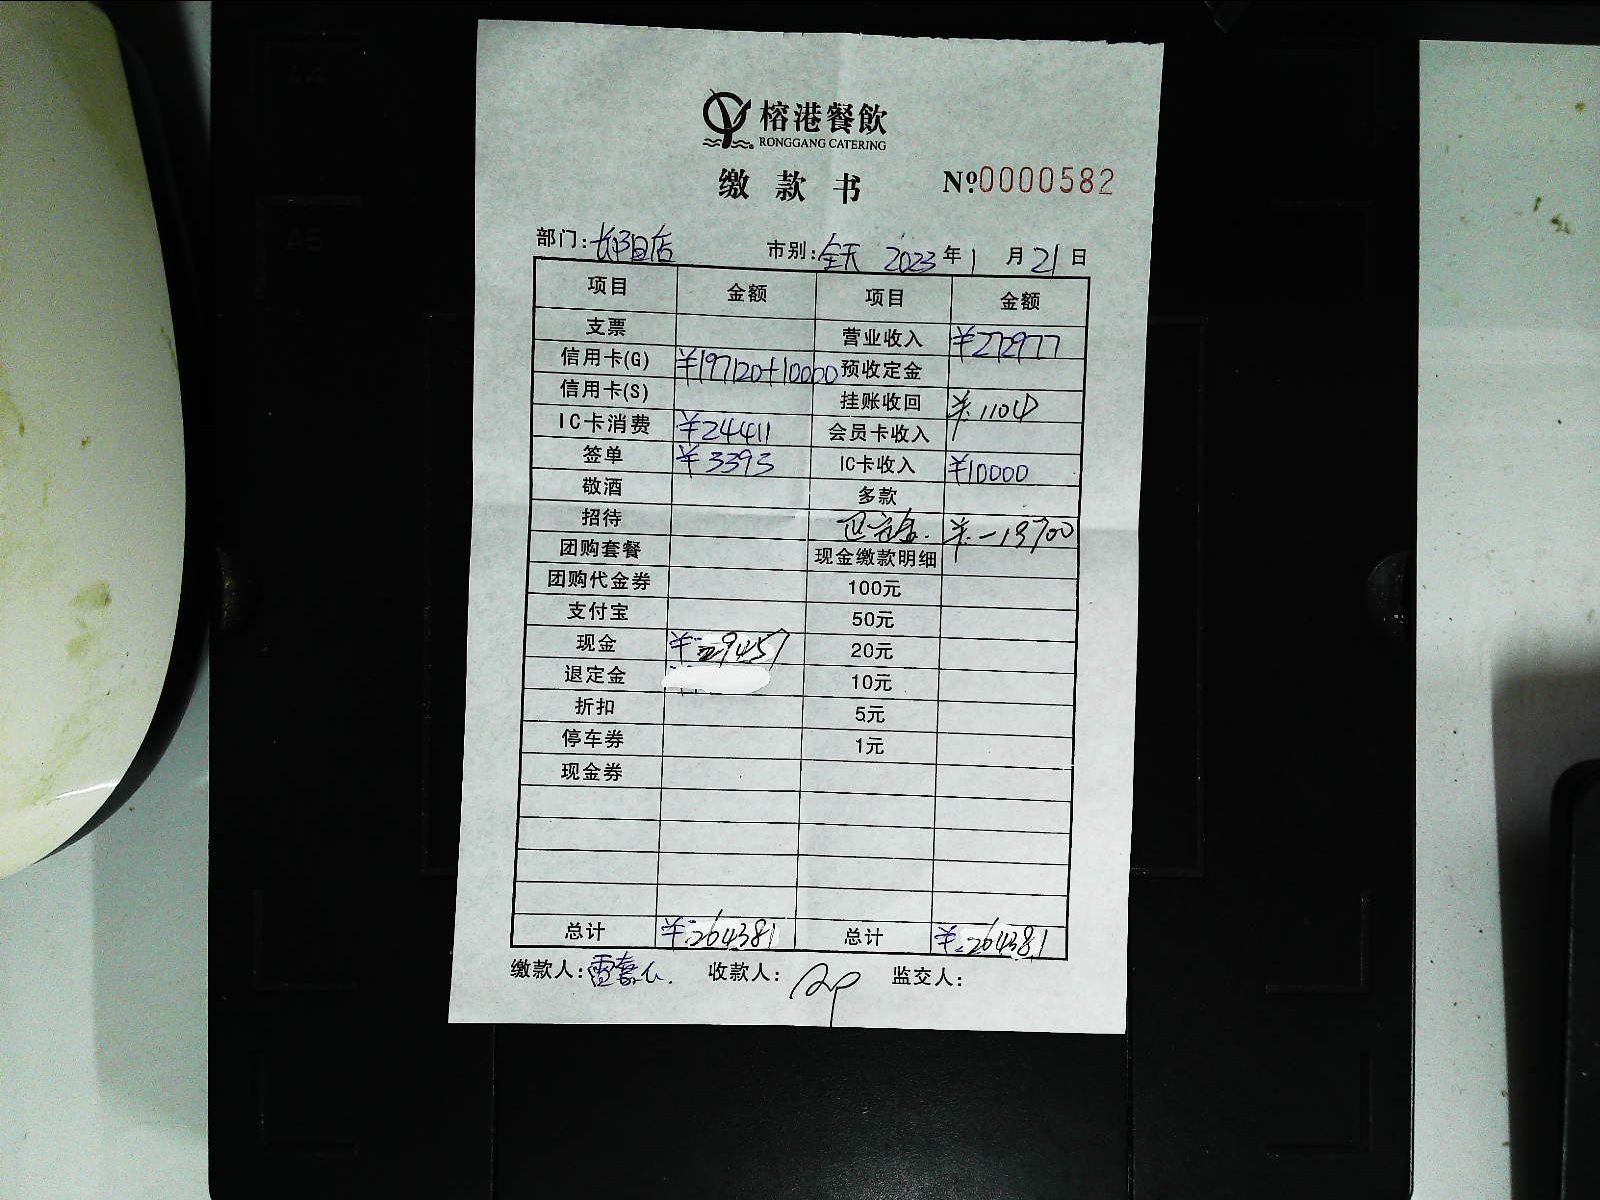 A4
A5
榕港餐飲
RONGGANG CATERING
缴款书 Nº0000582
部门:长阳店 市别:全天 2023年1月21日
项目 金额 项目 金额
支票 营业收入 ¥272977
信用卡(G) ¥197120+10000 预收定金
信用卡(S) 挂账收回 ¥1104
IC卡消费 ¥24411 会员卡收入
签单 ¥3393 IC卡收入 ¥10000
敬酒 多款
招待 退定金. ¥-19700
团购套餐 现金缴款明细
团购代金券 100元
支付宝 50元
现金 ¥29457 20元
退定金 10元
折扣 5元
停车券 1元
现金券
总计 ¥264381 总计 ¥264381
缴款人: 收款人: 监交人: